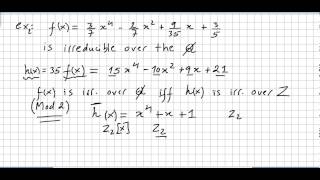 ex: f(x) = 3/7 x⁴ - 2/7 x² + 9/35 x + 3/5
is irreducible over the Q
h(x) = 35 f(x) = 15x⁴ - 10x² + 9x + 21
f(x) is irr. over Q iff h(x) is irr. over Z
(Mod 2) h̄(x) = x⁴ + x + 1 Z₂
Z₂[x] Z₂